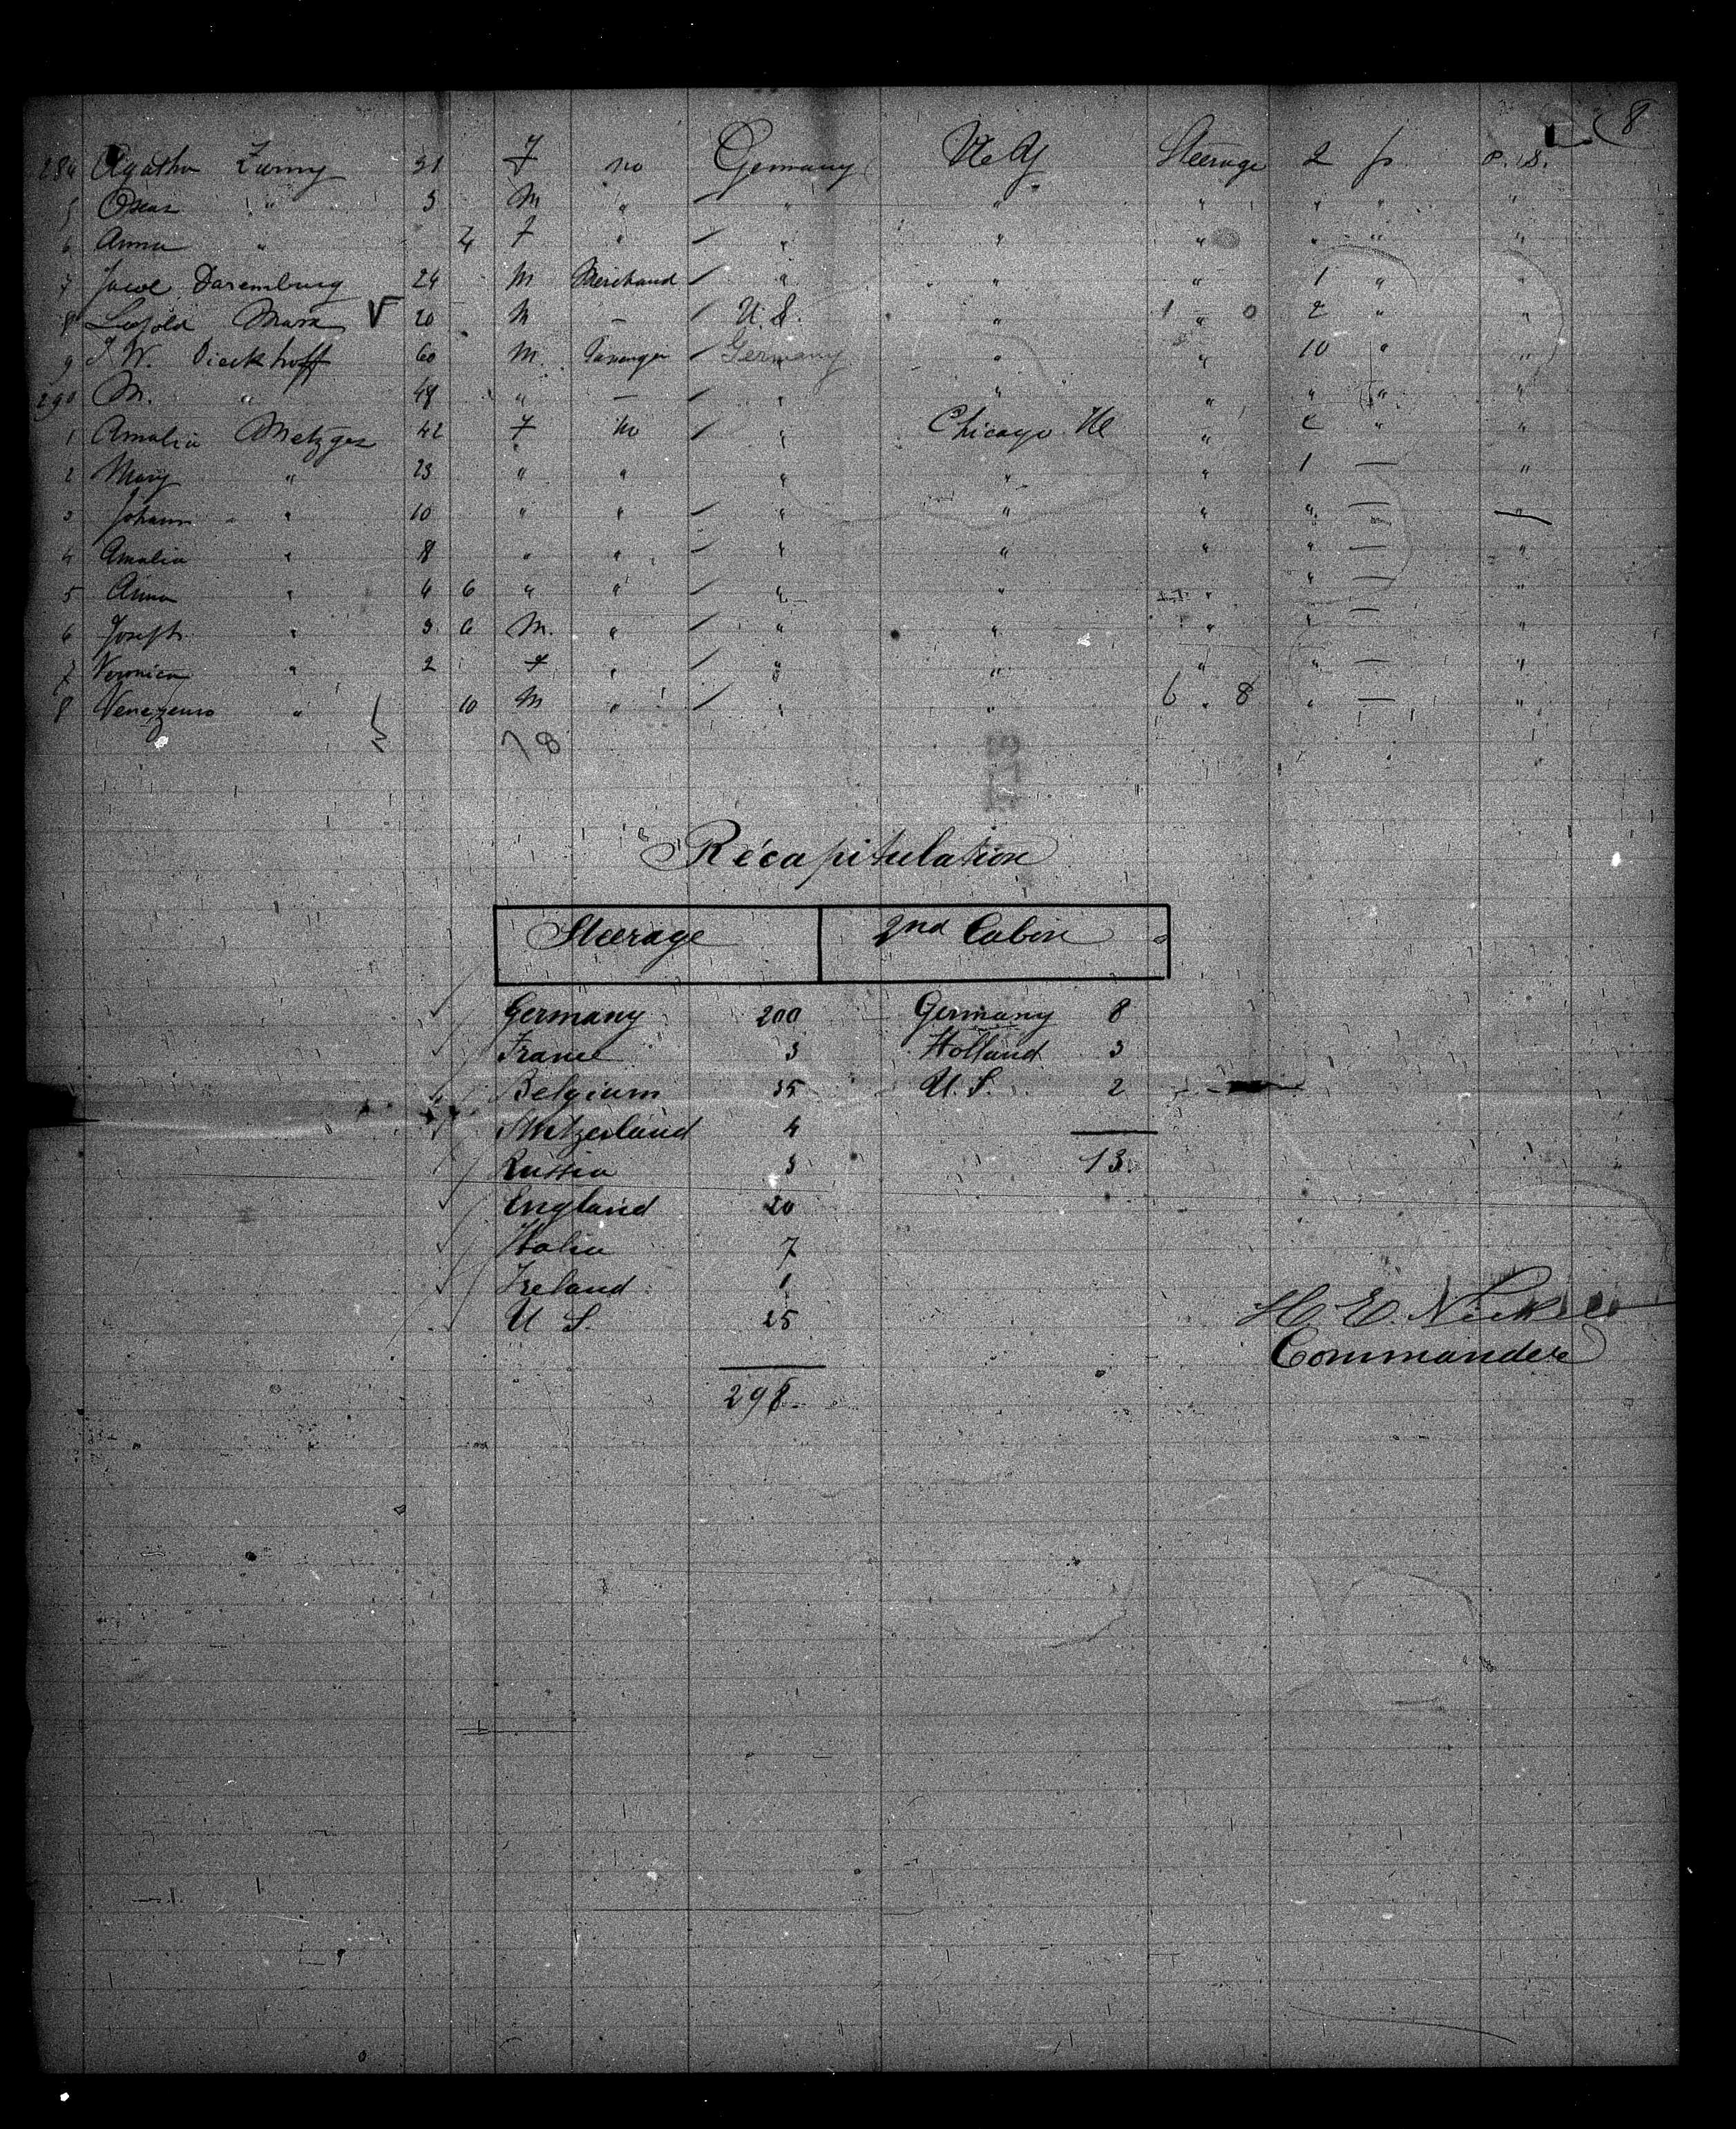 8
284 Agatha Zurny 31 F no Germany N. Y. Steerage 2 p P. S.
5 Oscar " 3 M " " " " " " "
6 Anna " 4 F " " " " " " "
7 Daremburg 24 M Merchand " " " 1 " "
8 Leopold Marx V 20 M — U. S. " 1 " 0 2 " "
9 J W. Dieckhoff 60 M. Germany " " 10 " "
290 M. " 48 " — " " " " " "
1 Amalia Metzger 42 F no " Chicago Ill " 2 " "
2 Mary " 23 " " " " " 1 — "
3 Johann " 10 " " " " " " — "
4 Amalia " 8 " " " " " " — "
5 Anna " 4 6 " " " " " " — "
6 Joseph " 3 6 M. " " " " " — "
7 Veronica " 2 F " " " " " — "
8 " 10 M " " " 6 " 8 " — "
78
Récapitulation
Steerage 2nd Cabin
Germany 200 Germany 8
France 3 Holland 3
Belgium 35 U. S. 2
Switzerland 4
Russia 3 13.
England 20
Italia 7
Ireland 1
U S. 25
298
H. E.
Commander